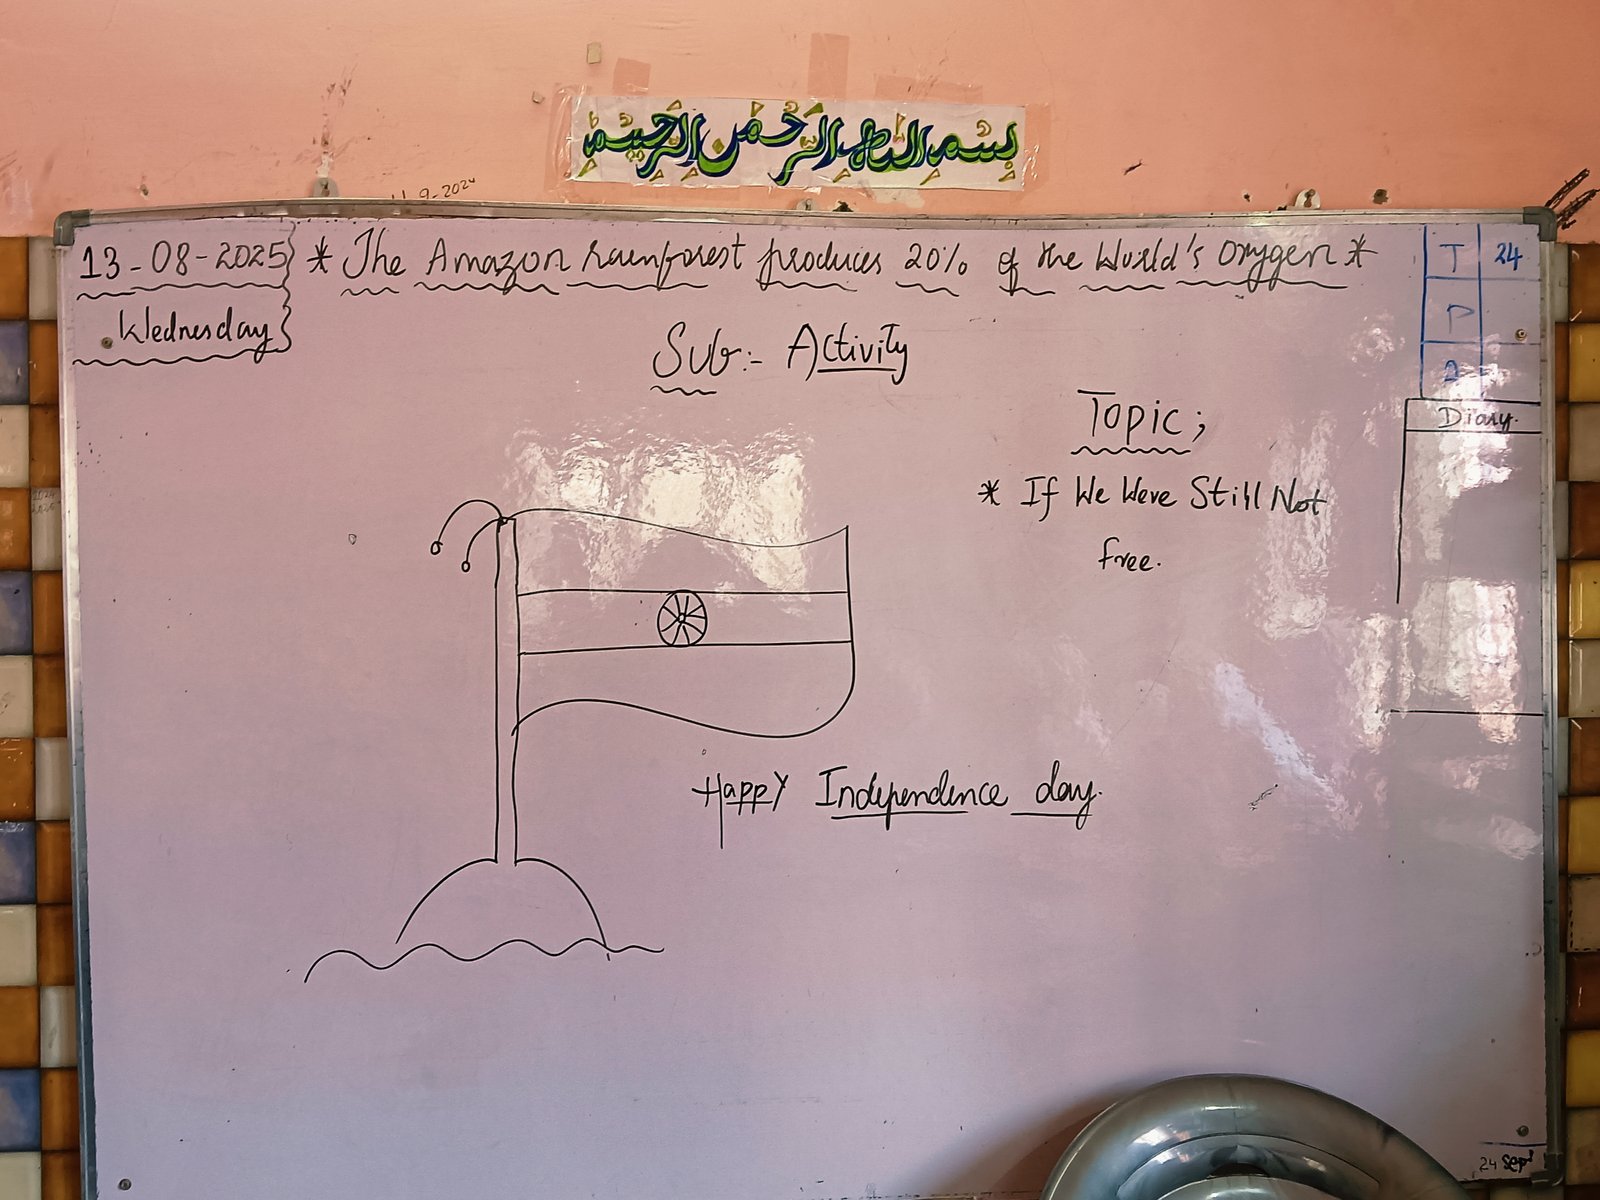 بِسْمِ اللهِ الرَّحْمٰنِ الرَّحِيْمِ
11-9-2024
13-08-2025
Wednesday
* The Amazon rainforest produces 20% of the World's Oxygen *
Sub:- Activity
T 24
P
A
Diary.
Topic;
* If We Were Still Not
free.
Happy Independence day.
24 Sep